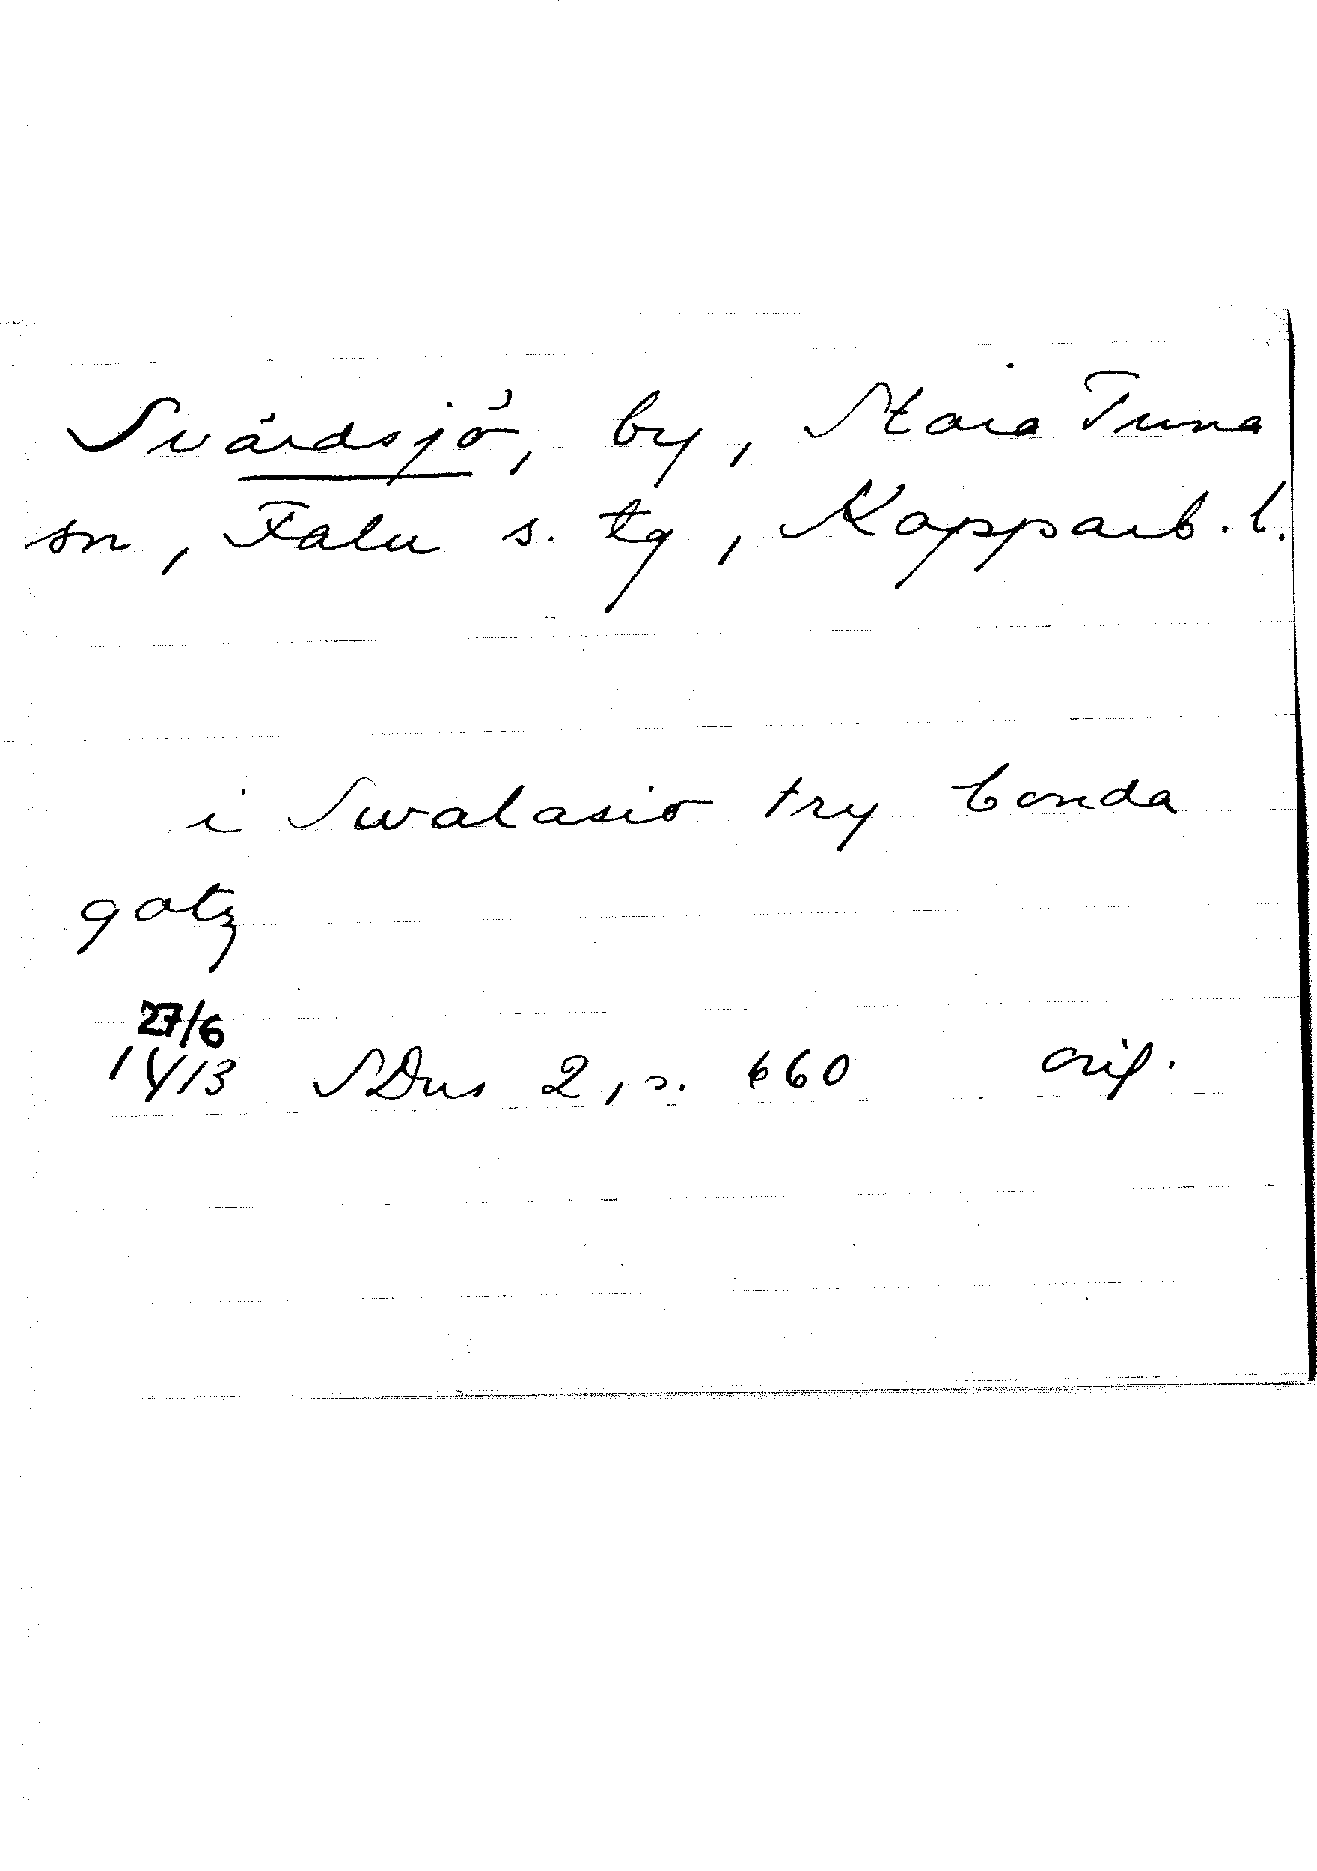 Svärdsjö, by, Stora Tuna
sn, Falu s. tg, Kopparb. l.
i Swalasio try bonda
gotz
27/6
1413 SDns 2, s. 660 orig.